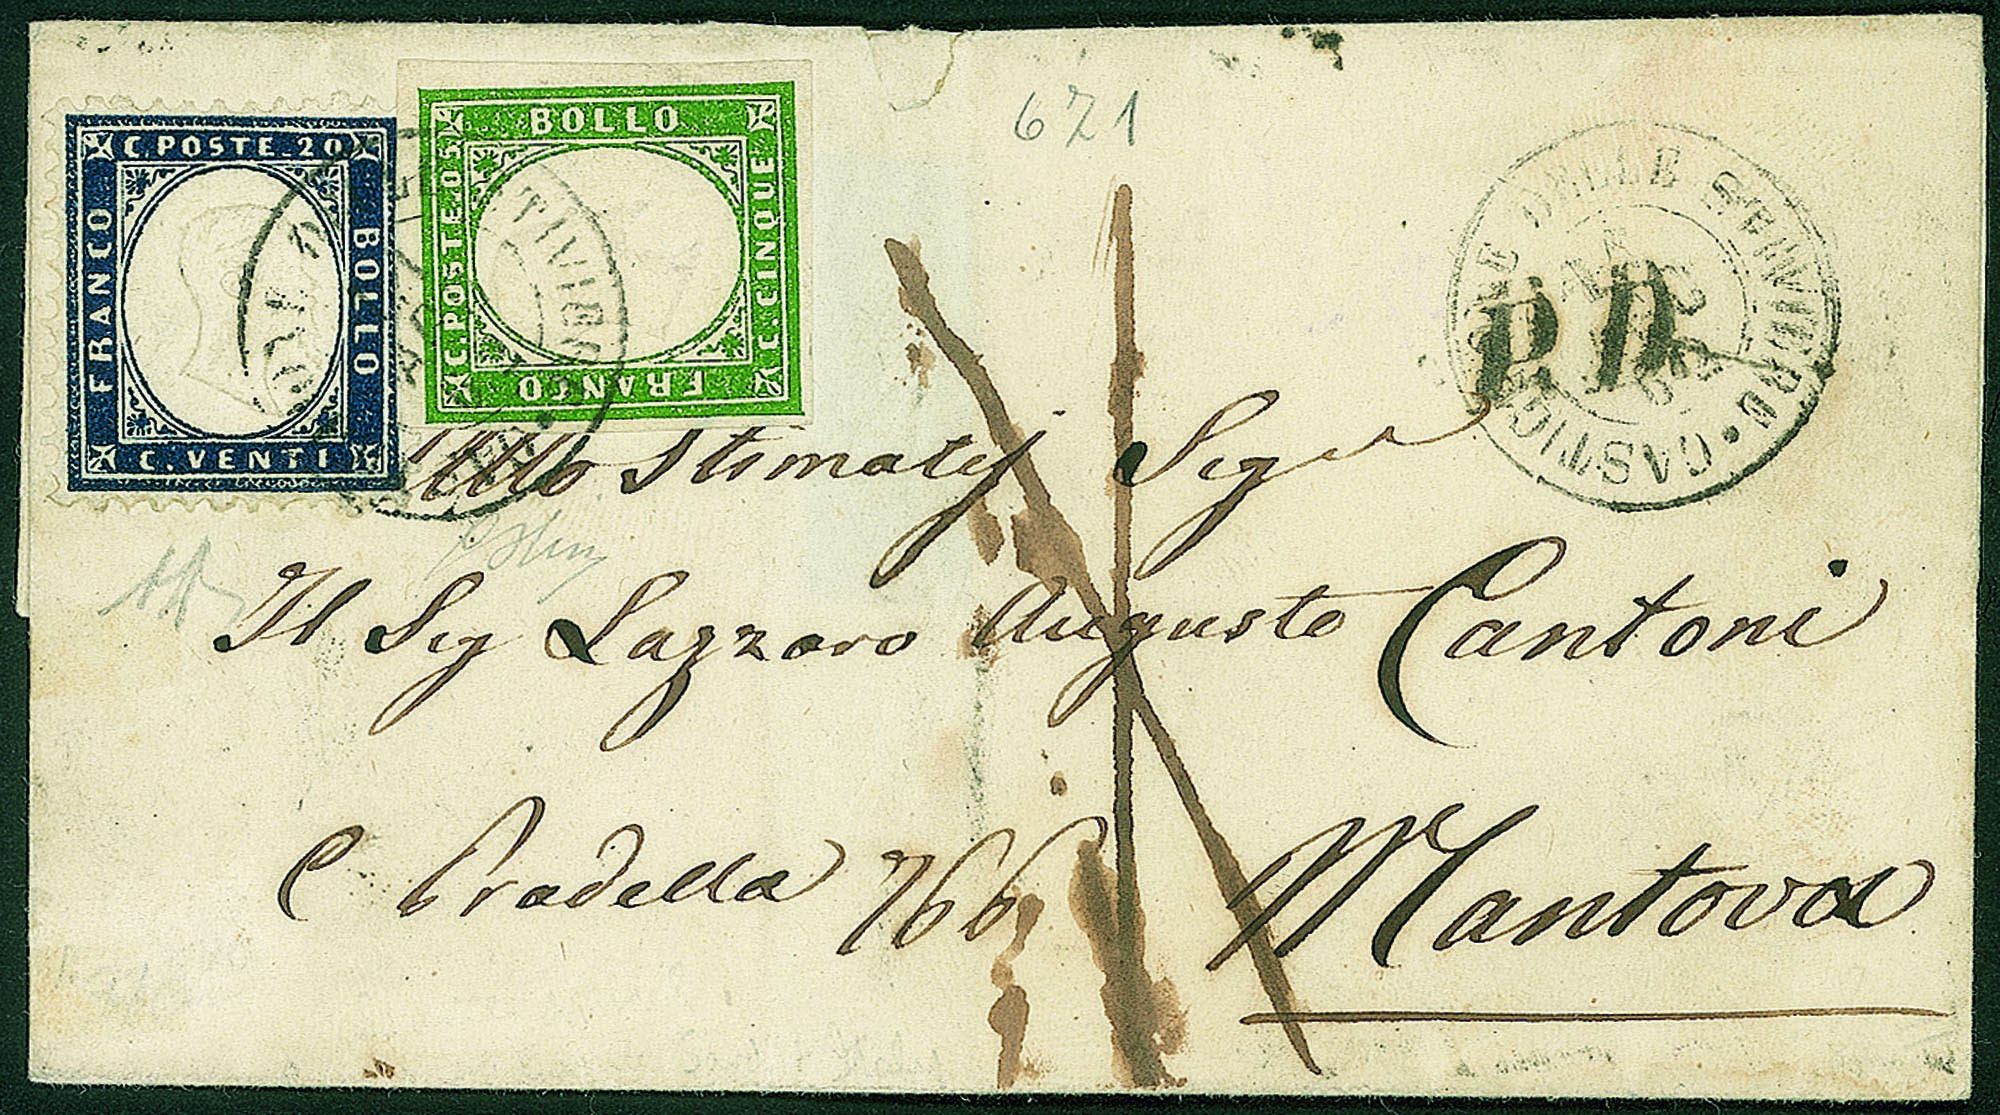 C. POSTE. 20
FRANCO
BOLLO
C. VENTI
BOLLO
C. POSTE. 05
C. CINQUE
FRANCO
671
DELLE
P.D.
Stimatis Sig
Il Sig Lazzaro Augusto Cantoni
C Pradella 766 Mantova